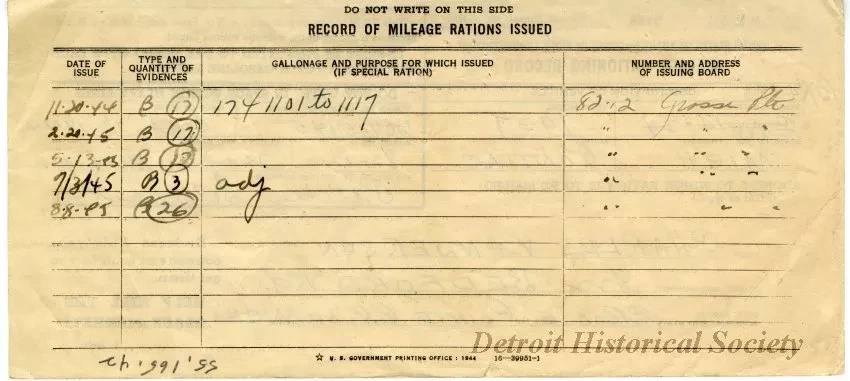 DO NOT WRITE ON THIS SIDE
RECORD OF MILEAGE RATIONS ISSUED
DATE OF ISSUE TYPE AND QUANTITY OF EVIDENCES GALLONAGE AND PURPOSE FOR WHICH ISSUED (IF SPECIAL RATION) NUMBER AND ADDRESS OF ISSUING BOARD
11-20-44 B 17 174 1101 to 1117 82-12 Grosse Pte
2-20-45 B 17 " " "
5-13- B 17 " " "
7/3/45 B 3 adj " " "
8-8-45 B 26 " " "
Detroit Historical Society
☆ U. S. GOVERNMENT PRINTING OFFICE : 1944 16—39951-1
55.165.42